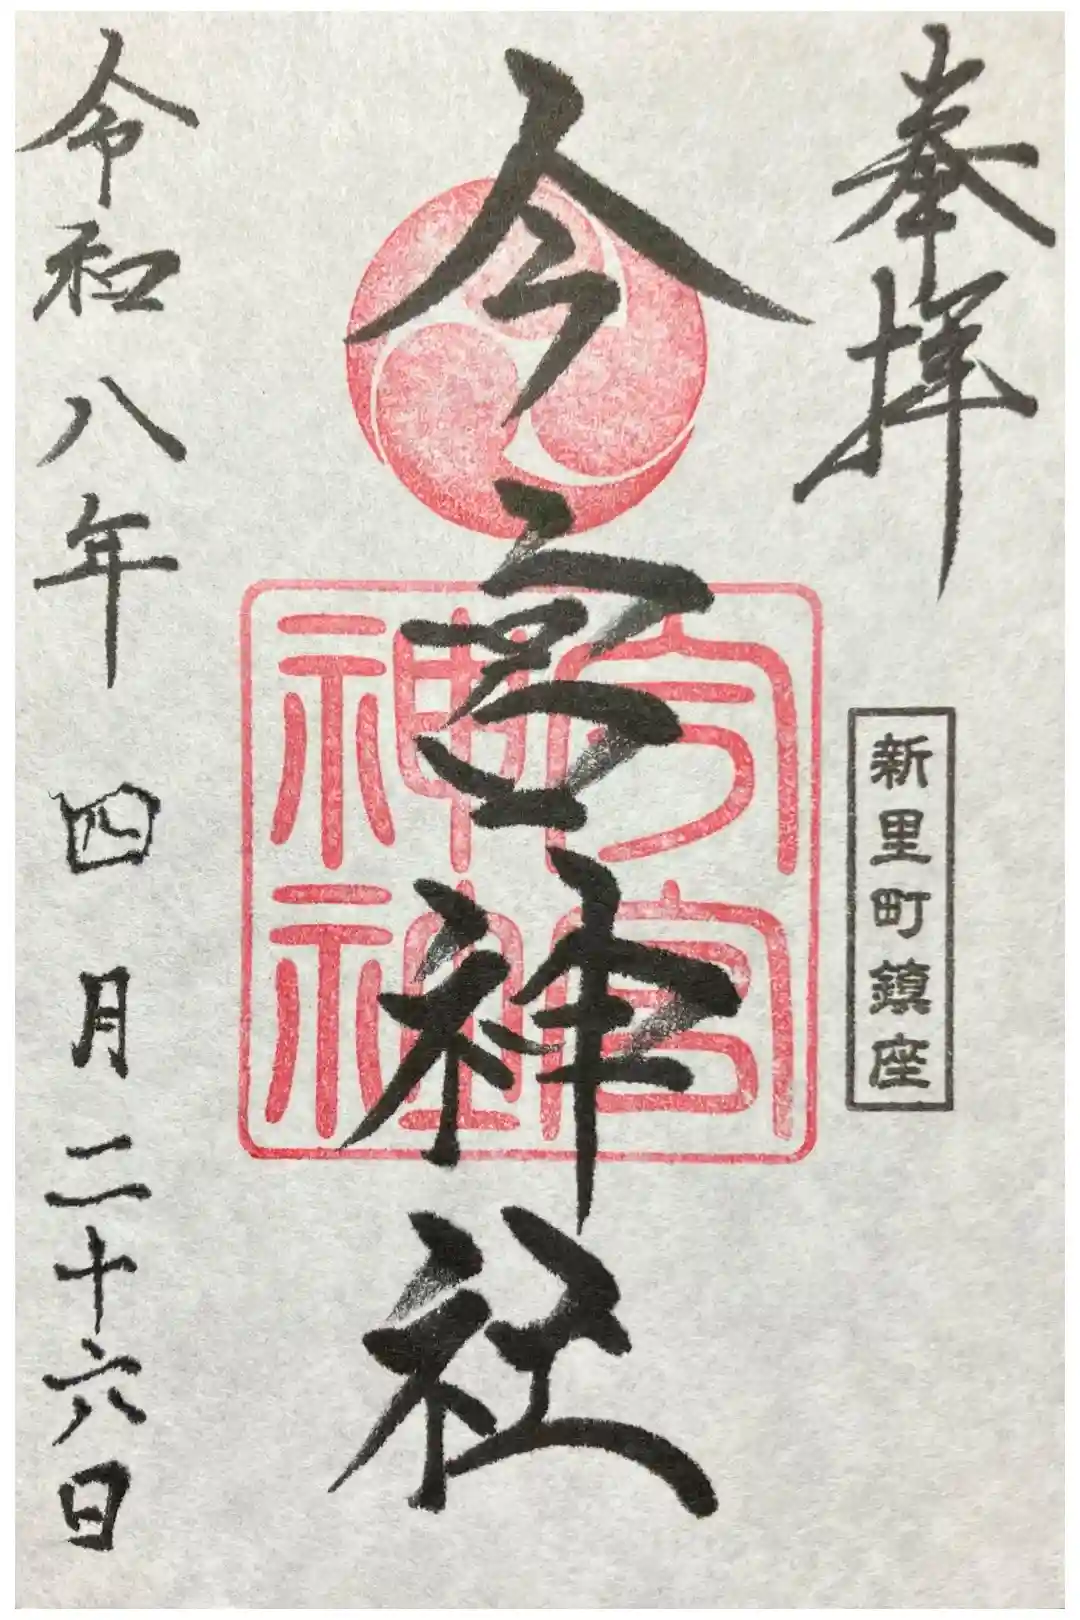 奉拝
新里町鎮座
今宮神社
今宮
神社
令和八年四月二十六日